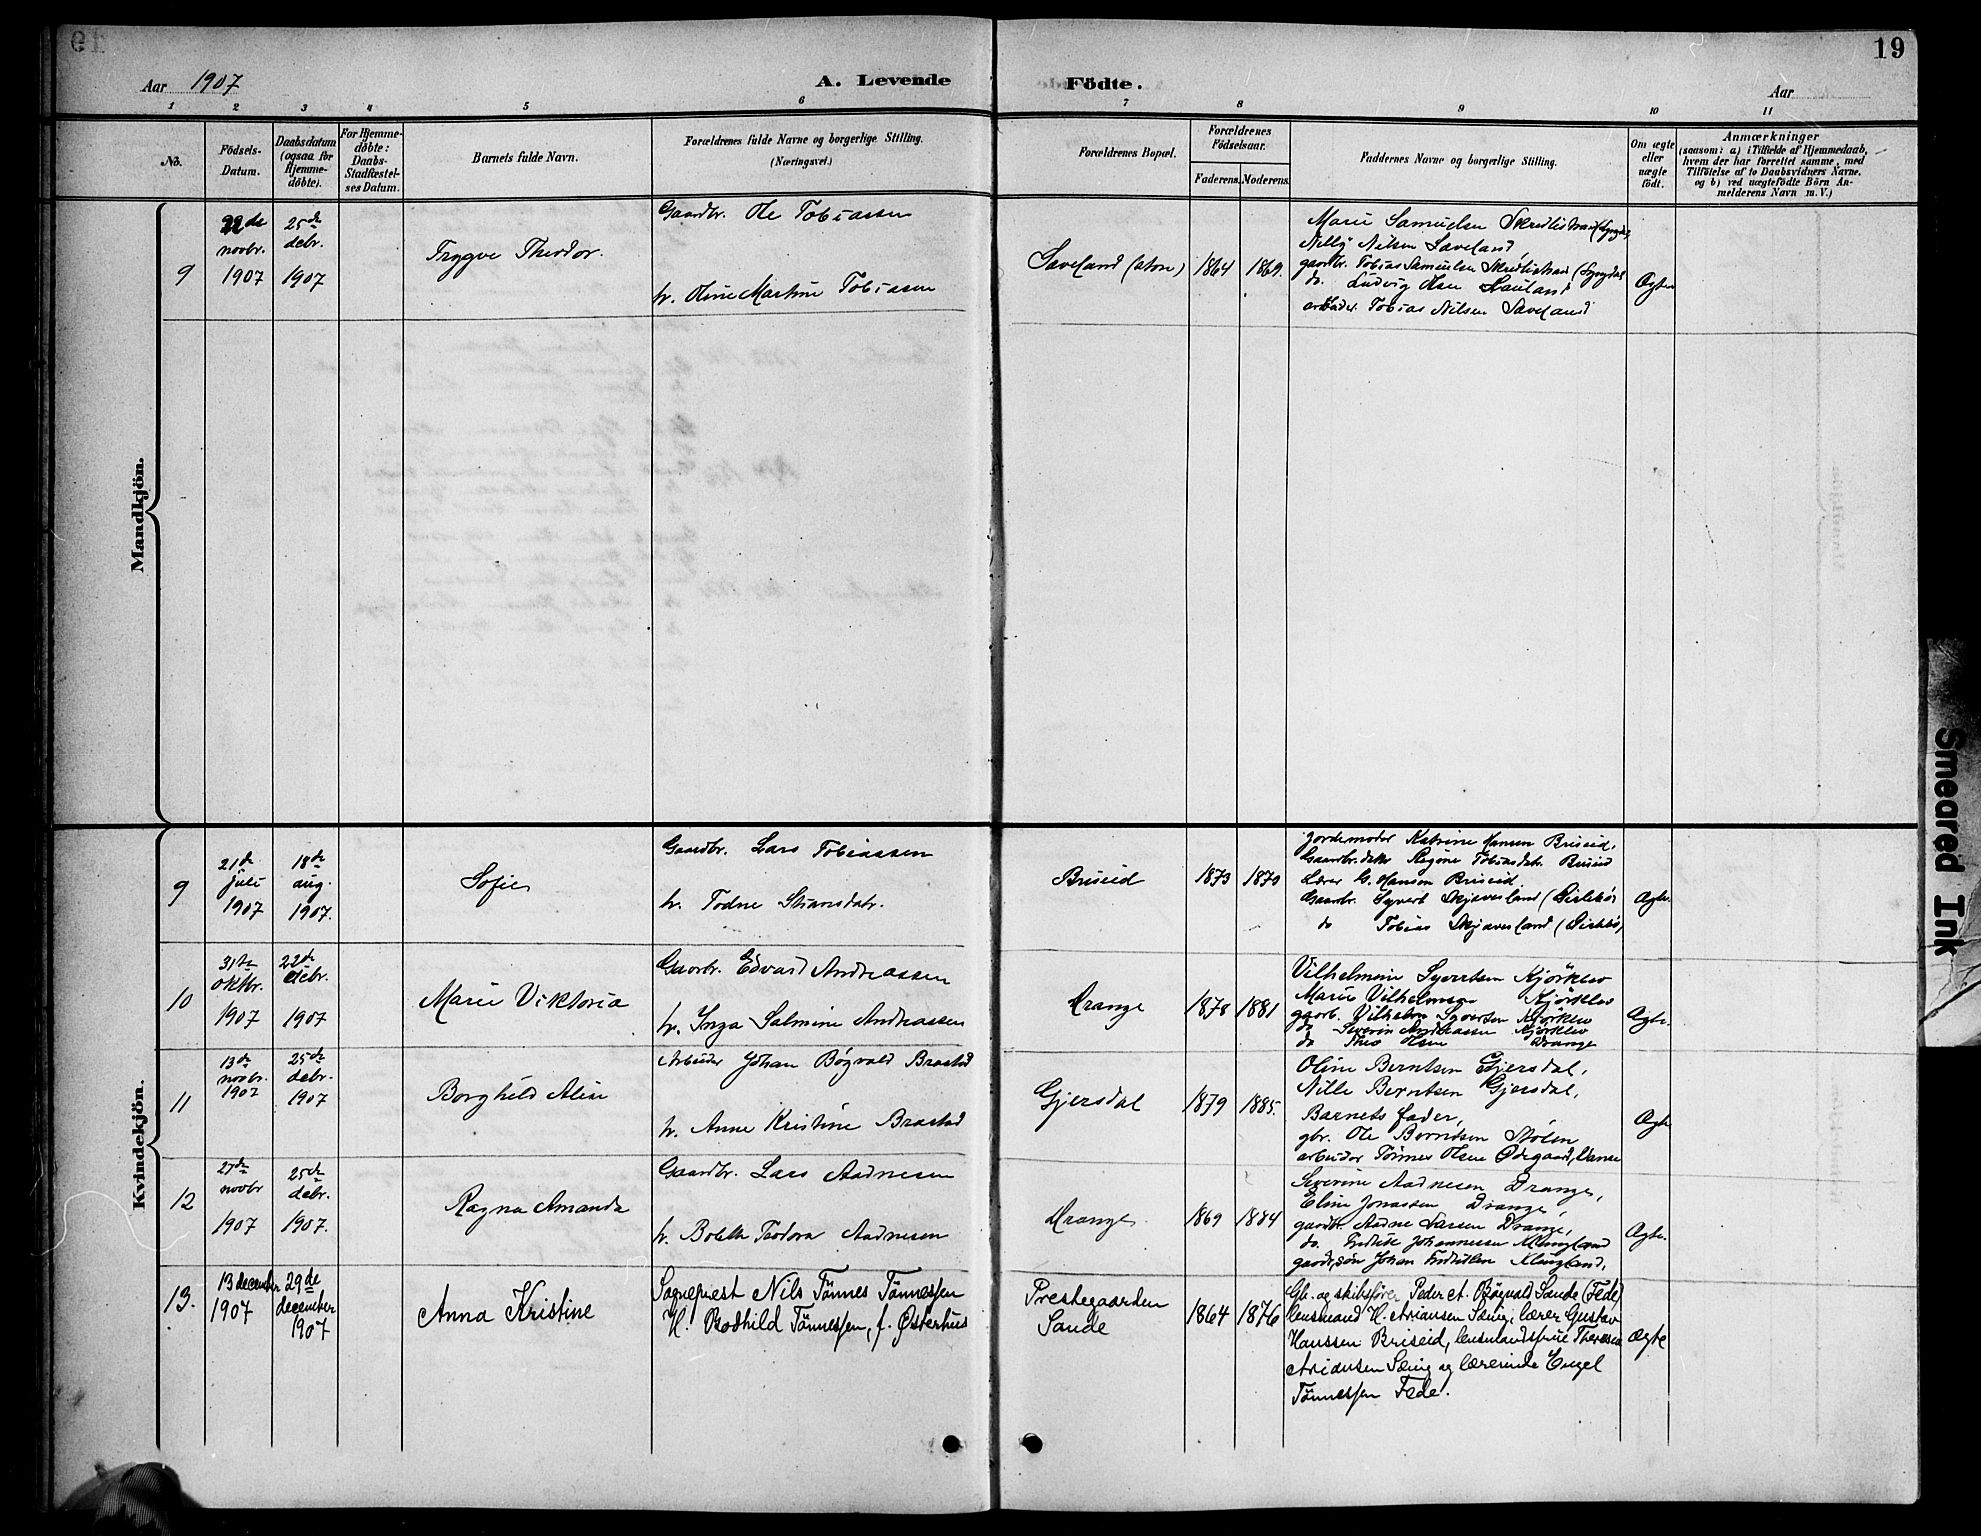 19
Aar 1907
A. Levende
Födte.
Aar
1 2 3 4 5 6 7 8 9 10 11
No.
Födsels-
Datum.
Daabsdatum
(ogsaa for
Hjemme-
döbte).
For Hjemme-
döbte:
Daabs-
Stadfæstel-
ses Datum.
Barnets fulde Navn.
Forældrenes fulde Navne og borgerlige Stilling.
(Næringsvei.)
Forældrenes Bopæl.
Forældrenes
Födselsaar.
Faderens. Moderens.
Faddernes Navne og borgerlige Stilling.
Om ægte
eller
uægte
födt.
Anmærkninger
(saasom: a) i Tilfælde af Hjemmedaab,
hvem der har forrettet samme, med
Tilföielse af to Daabsvidners Navne.
og b) ved uægtefödte Börn An-
melderens Navn m. V.)
Mandkjön.
9
22de
novbr.
1907
25de
debr.
1907
Trygve Theodor.
Gaardbr. Ole Tobiassen
h. Oline Martine Tobiassen
Saveland (store)
1864
1869.
Marie Samuelsen
Nelly Nilsen Saveland
gaardbr. Tobias Samuelsen
do. Ludvig Olsen
arbeider. Tobias Nilsen Saveland
Ægte
Kvindekjön.
9
21de
juli
1907
18de
aug.
1907.
Sofie
Gaardbr. Lars Tobiassen
h. Todne
Briseid
1873
1870
Jordemoder Katrine Hansen Briseid,
Gaardbr.datter Regine Tobiasdatr. Briseid
Lærer G. Hansen Briseid.
Gaardbr. Syvert Skjævesland
do Tobias Skjævesland
Ægte.
10
31te
oktbr.
1907
22de
debr.
1907
Marie Viktoria
Gaardbr. Edvard Andreassen
h. Inga Salmine Andreassen
Drange
1878
1881
Vilhelmine Syvertsen Kjörklev
Marie Vilhelmsen Kjörklev
gaardb. Vilhelm Syvertsen Kjörklev
do Severin Andreassen Kjörklev
do Theo Olsen Drange
Ægte.
11
13de
novbr.
1907
25de
debr.
1907
Borghild Aline
Arbeider Johan Bögvald Brastad
h. Anne Kristine Brastad
Gjersdal
1879
1885.
Oline Berntsen Gjersdal,
Nille Berntsen Gjersdal,
Barnets fader,
gbr. Ole Berntsen Stölen
arbeider Tönnes Olsen Ödegaard, Vanse
Ægte
12
27de
novbr
1907
25de
debr.
1907.
Ragna Amanda
Gaardbr. Lars Aadnesen
h. Bolette Teodora Aadnesen
Drange
1869
1884
Severine Aadnesen Drange,
Eline Jonassen Drange,
gaardbr. Aadne Larsen Drange,
do. Johannessen Klungland
gaardbr.sön Johan Klungland,
Ægte.
13.
13 december
1907
29de
december
1907
Anna Kristine
Sogneprest Nils Tönnes Tönnessen
H. Bodhild Tönnessen, f. Østerhus
Prestegaarden
Sande
1864
1876
Gb. og skibsfører Peder A. Bögvald Sande (Fede)
lensmand H. Ariansen Sænig, lærer Gustav
Hanssen Briseid, lensmandsfrue Theresia
Ariansen Sænig og lærerinde Engel
Tönnessen Fede.
Ægte
Smeared Ink